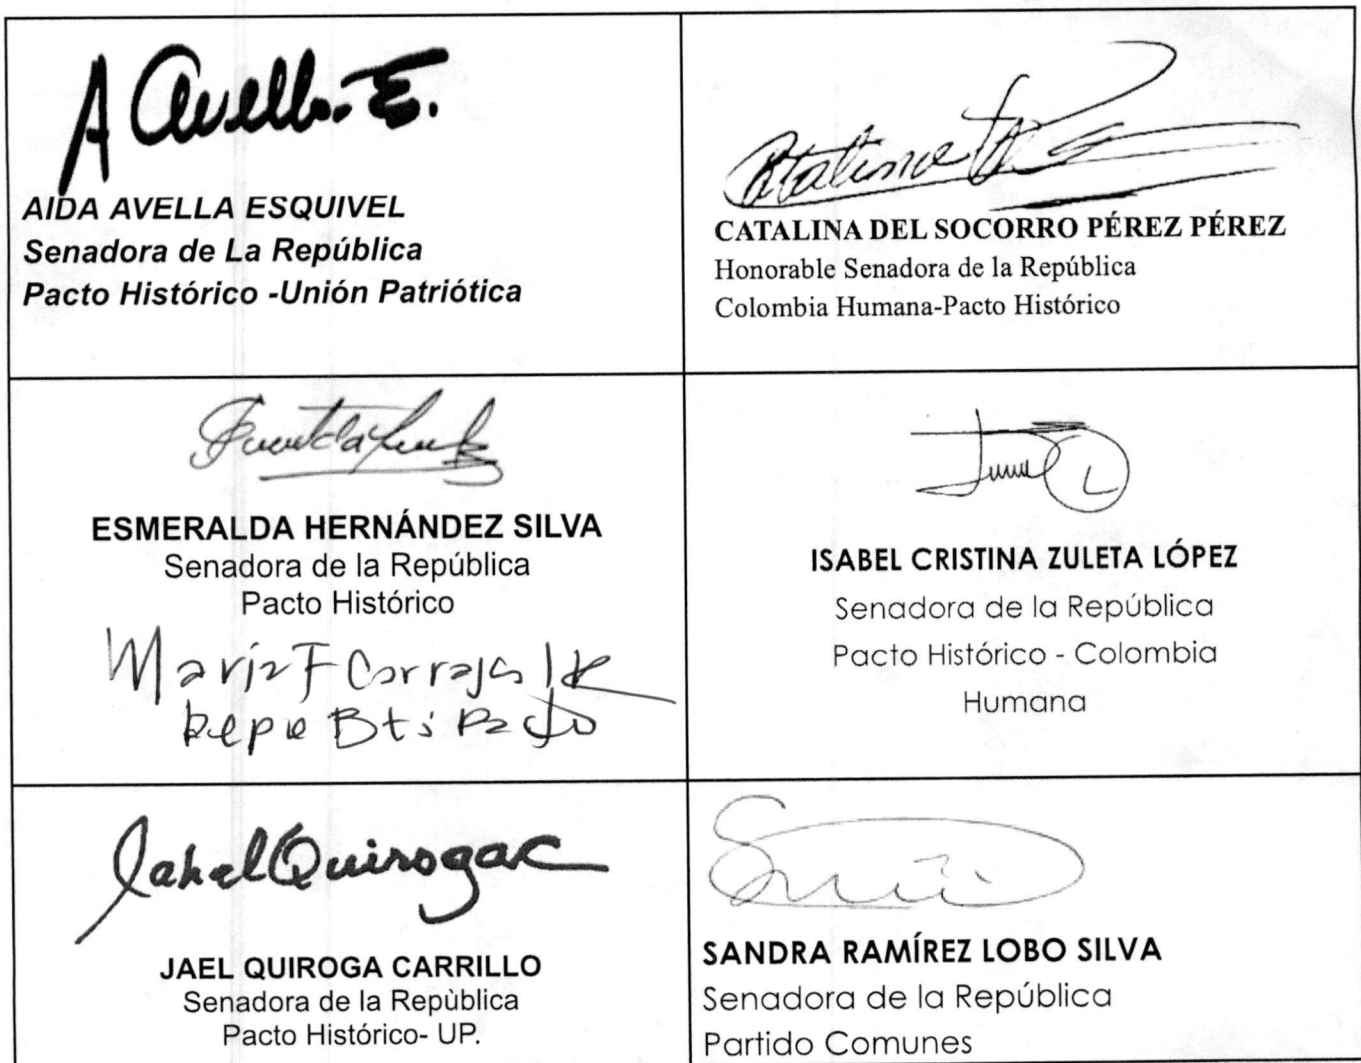 A Avella E.
AIDA AVELLA ESQUIVEL
Senadora de La República
Pacto Histórico -Unión Patriótica
Catalina
CATALINA DEL SOCORRO PÉREZ PÉREZ
Honorable Senadora de la República
Colombia Humana-Pacto Histórico
ESMERALDA HERNÁNDEZ SILVA
Senadora de la República
Pacto Histórico
María F Carrascal
Bta Pacto
ISABEL CRISTINA ZULETA LÓPEZ
Senadora de la República
Pacto Histórico - Colombia
Humana
Jahel Quiroga C
JAEL QUIROGA CARRILLO
Senadora de la Repùblica
Pacto Histórico- UP.
SANDRA RAMÍREZ LOBO SILVA
Senadora de la República
Partido Comunes